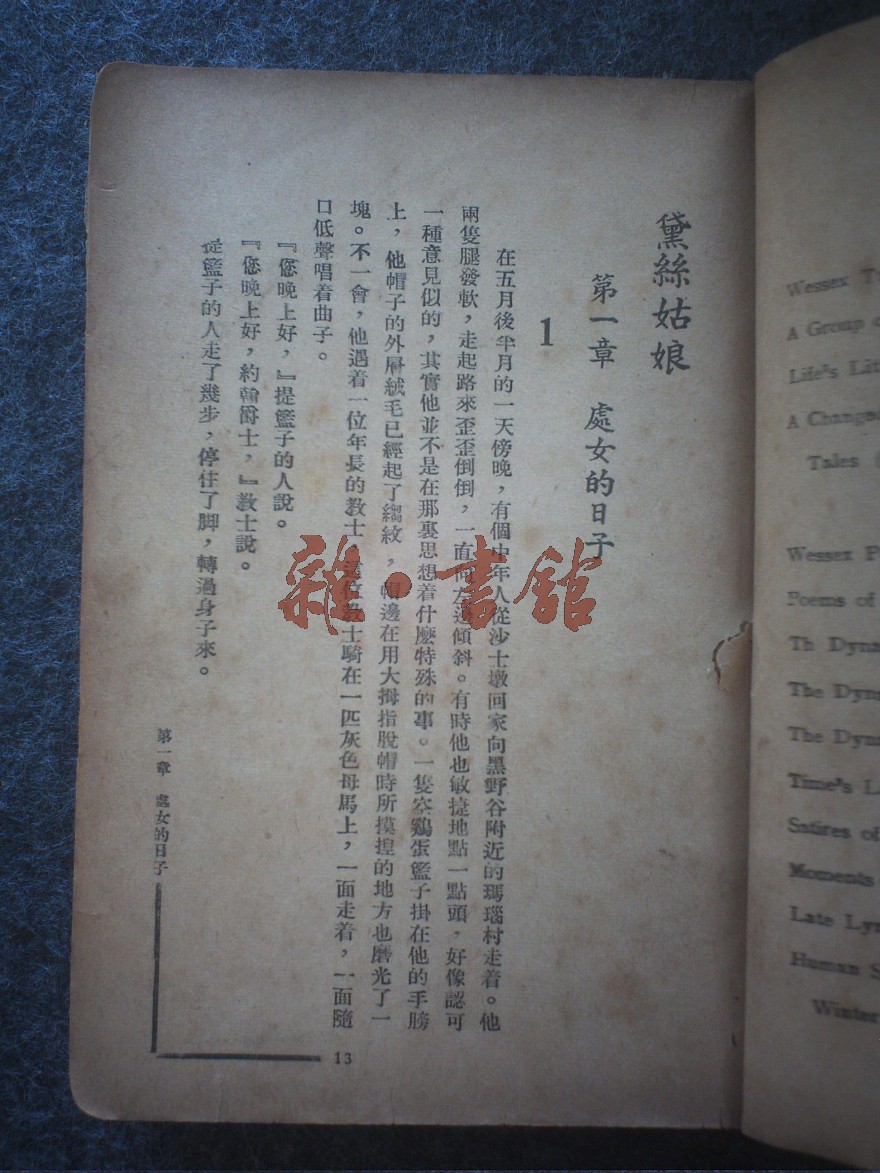 黛絲姑娘
第一章 處女的日子
1
在五月後半月的一天傍晚，有個中年人從沙士墩回家向黑野谷附近的瑪瑙村走着。他
兩隻腿發軟，走起路來歪歪倒倒，一直向左邊傾斜。有時他也敏捷地點一點頭，好像認可
一種意見似的，其實他並不是在那裏思想着什麼特殊的事。一隻空鷄蛋籃子掛在他的手膀
上，他帽子的外層絨毛已經起了縐紋，帽邊在用大拇指脫帽時所摸揑的地方也磨光了一
塊。不一會，他遇着一位年長的教士，這位教士騎在一匹灰色母馬上，一面走着，一面隨
口低聲唱着曲子。
『您晚上好，』提籃子的人說。
『您晚上好，約翰爵士，』教士說。
提籃子的人走了幾步，停住了脚，轉過身子來。
第一章 處女的日子
13
雜·書館
Wessex
A Group
Life's
A
Tales
Wessex
Poems of
Th
The
The
Time's
Satires of
Moments
Late
Human
Winter